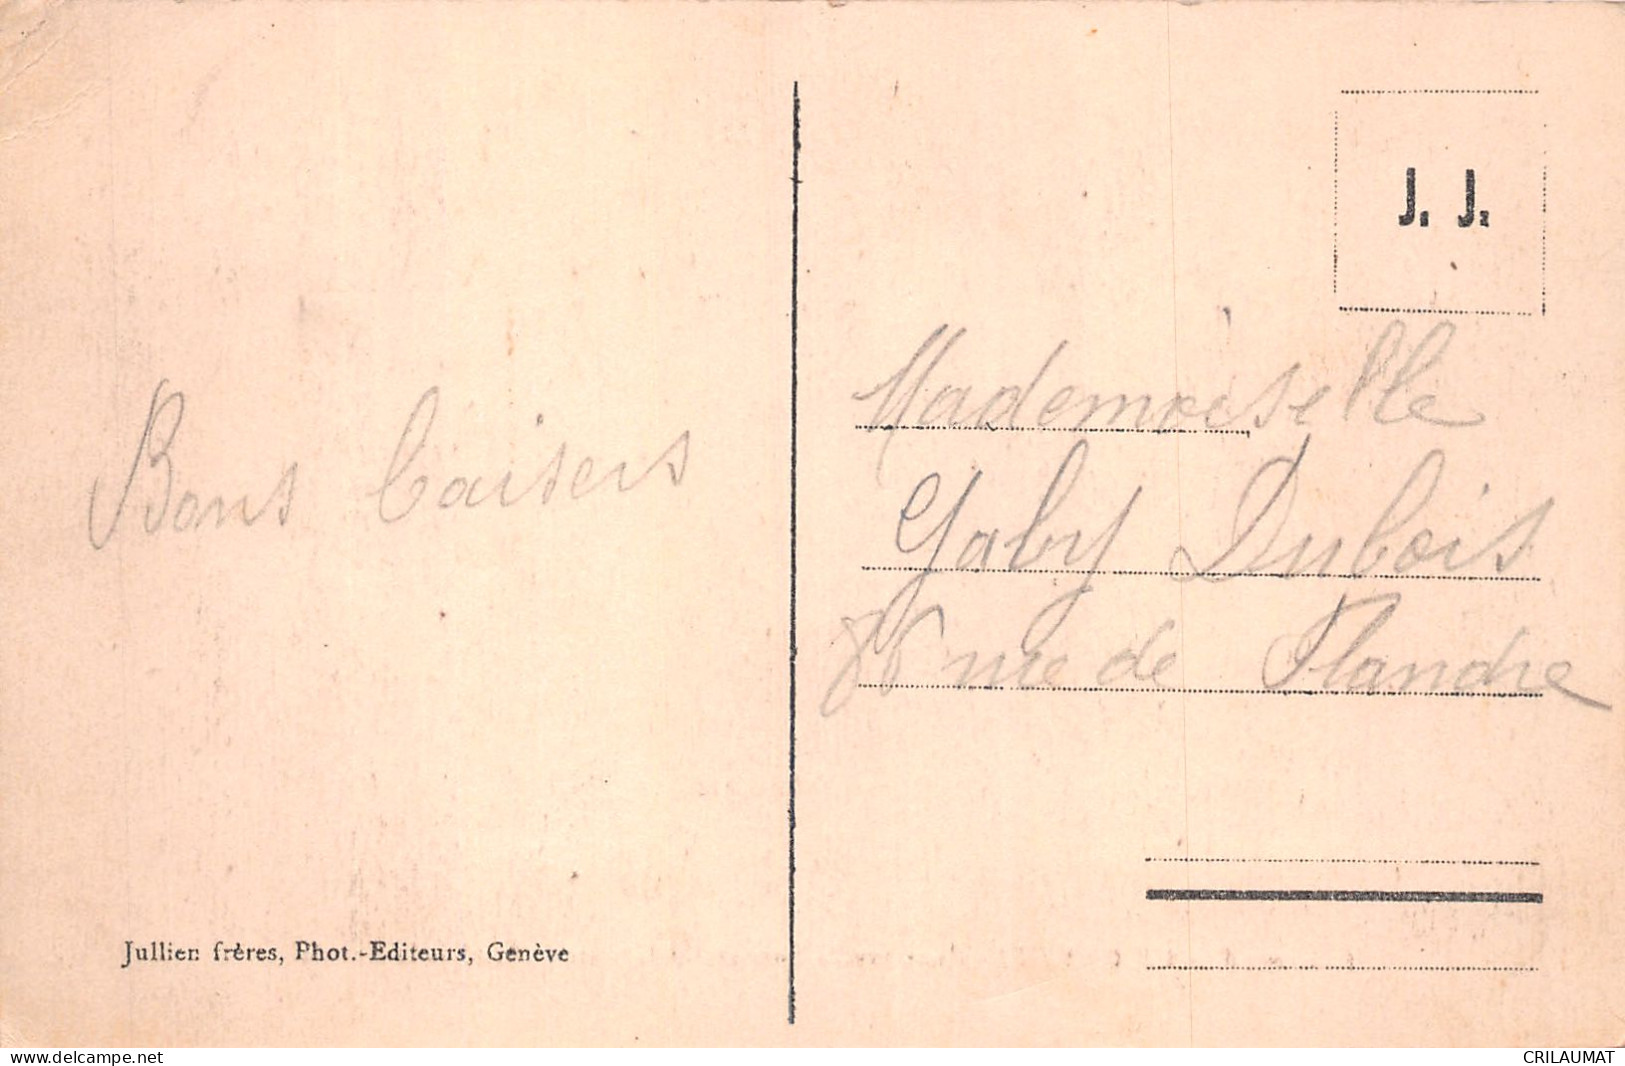 Bons baisers
Jullien frères, Phot.-Editeurs, Genève
J. J.
Mademoiselle
Gaby Dubois
rue de Flandre
www.delcampe.net
CRILAUMAT